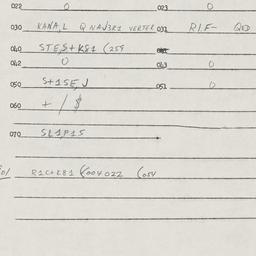 022 0 023 0
030 KANA,L Q NAVJ3R1 VERTER 031 RIF- QED
040 STE,S+KS1 (254
042 0 043 0
050 S+1SE,J 051 0
060 + / $
070 SL1P1S
01 R1C+281 (004022 (054